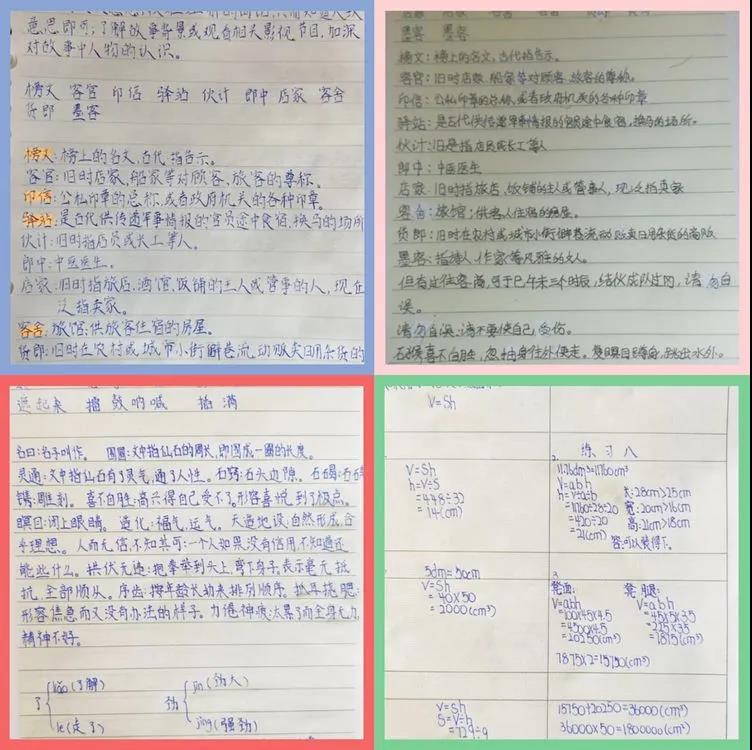 意思即可；了解故事背景或观看相关影视节目，加深
对故事中人物的认识。
榜文 客官 印信 驿站 伙计 郎中 店家 客舍
货郎 墨客
榜文：榜上的名文，古代指告示。
客官：旧时店家、船家等对顾客、旅客的尊称。
印信：公私印章的总称，或者政府机关的各种印章。
驿站：是古代供传递军事情报的官员途中食宿、换马的场所
伙计：旧时指店员或长工等人。
郎中：中医医生。
店家：旧时指旅店、酒馆、饭铺的主人或管事的人，现在
泛指卖家。
客舍：旅馆；供旅客住宿的房屋。
货郎：旧时在农村或城市小街僻巷流动贩卖日用杂货的
墨客 墨客
榜文：榜上的名文，古代指告示。
客官：旧时店家、船家等对顾客、旅客的尊称。
印信：公私印章的总称，或者政府机关的各种印章
驿站：是古代供传递军事情报的官员途中食宿，换马的场所。
伙计：旧是指店员或长工等人
郎中：中医医生
店家：旧时指旅店、饭铺的主人或管事人，现泛指卖家
客舍：旅馆；供客人住宿的房屋。
货郎：旧时在农村或城市小街僻巷流动贩卖日用杂货的商贩
墨客：指诗人、作家等风雅的文人。
但有过往客商，可于巳午未三个时辰，结伙成队过冈，请勿自
误。
请勿自误：请不要使自己受伤。
石猴喜不自胜，忽抽身往外便走。复瞑目蹲身，跳出水外。
逃起来 擂鼓呐喊 指满
名曰：名字叫作。 围圆：文中指仙石的周长，即围成一圈的长度。
灵通：文中指仙石有了灵气，通了人性。石窍：石头边隙。石碣：石碑
镌：雕刻。 喜不自胜：高兴得自己受不了。形容喜悦到了极点。
瞑目：闭上眼睛。 造化：福气，运气。 天造地设：自然形成，合
乎理想。 人而无信，不知其可：一个人如果没有信用，不知道还
能些什么。 拱伏无违：把拳举到头上，弯下身子，表示毫无抵
抗，全部顺从。序齿：按年龄长幼来排列顺序。抓耳挠腮：
形容焦急而又没有办法的样子。力倦神疲：太累了而全身无力，
精神不好。
了 liǎo（了解）
le（走了）
劲 jìn（劲人）
jìng（强劲）
V=Sh
V=Sh
h=V÷S
=448÷32
=14(cm)
2. 练习八
11.76dm³=11760cm³
V=abh
h=V÷a÷b 长：28cm>25cm
=11760÷28÷20 宽：20cm>16cm
=420÷20 高：21cm>18cm
=21(cm)
答：可以装得下。
5dm=50cm
V=Sh
=40×50
=2000(cm³)
3.
凳面： 凳腿：
V=abh V=abh
=100×45×4.5 =45×5×35
=4500×4.5 =225×35
=20250(cm³) =7875(cm³)
7875×2=15750(cm³)
V=Sh
S=V÷h
=729÷9
15750+20250=36000(cm³)
36000×50=1800000(cm³)